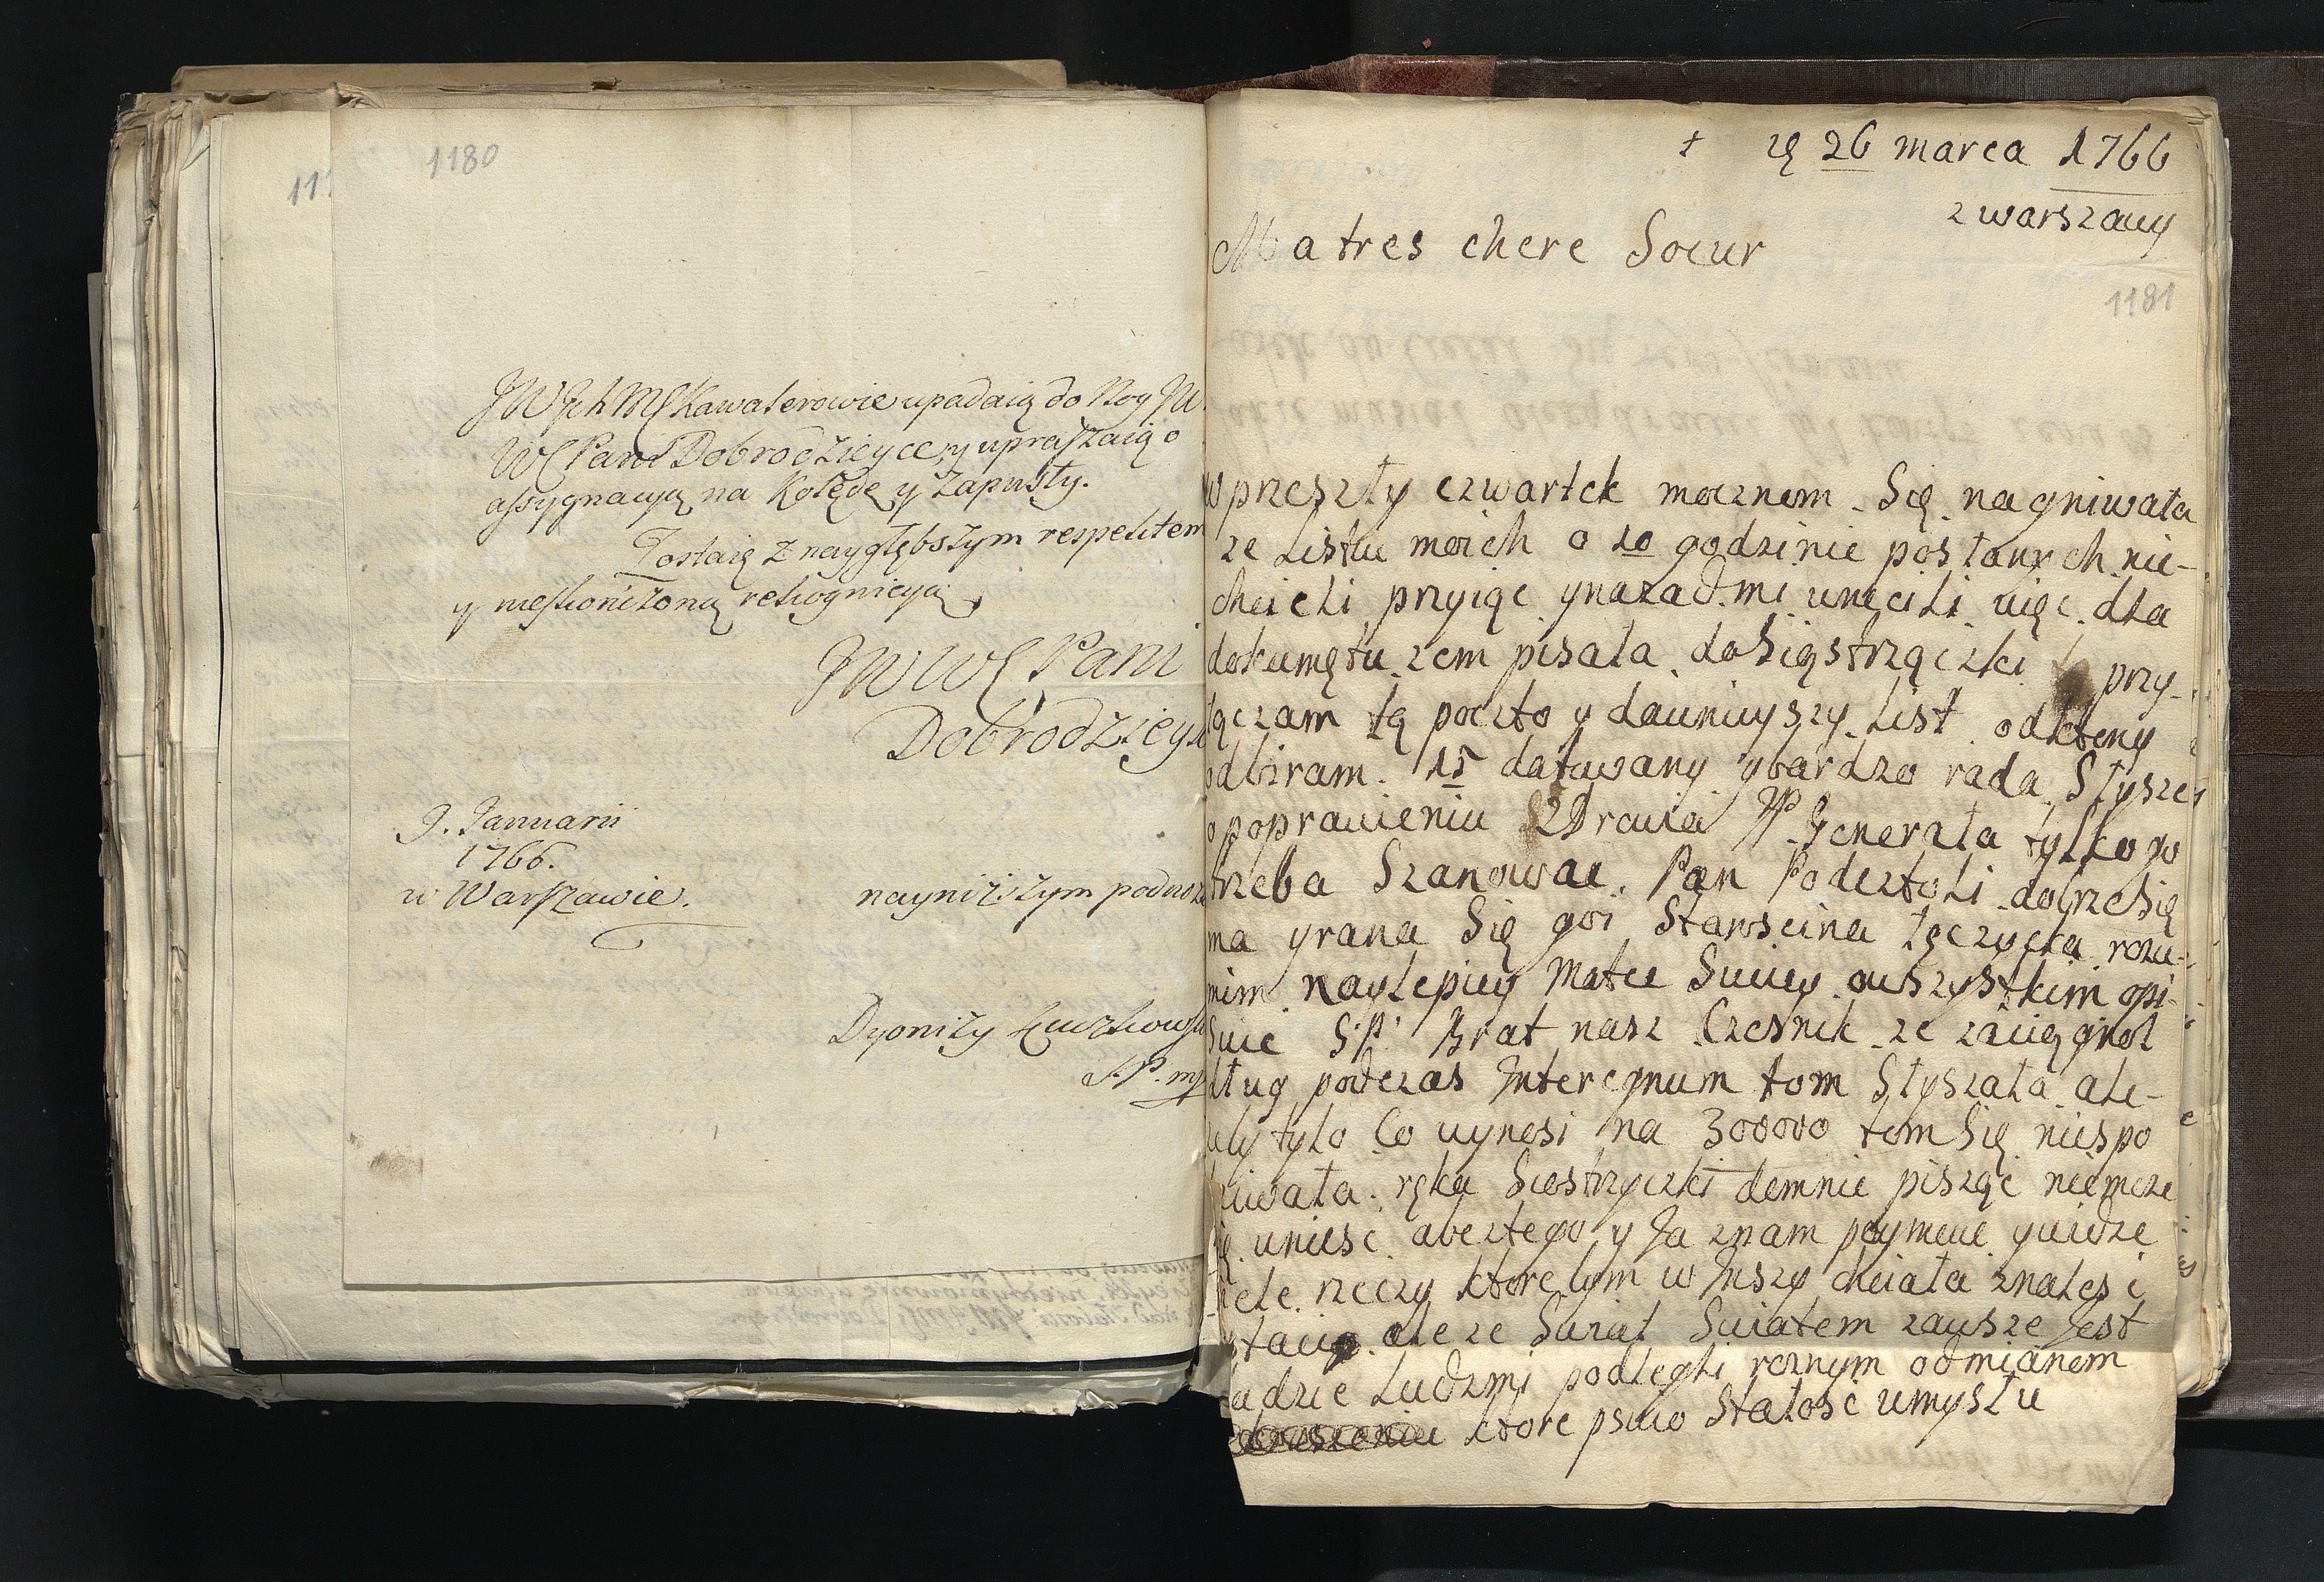 1180
JWJch Mć Kawalerowie upadaią do Nog JW
WC Pani Dobrodzieyce, y upraszaią o
assygnacyą na Kolędę y Zapusty.
Zostaię z naygłębszym respektem
y nieskończoną rekognicyą
JWWC Pani
Dobrodziey
9. Januarii
1766.
w Warszawie.
nayniższym podnoż
Dyonizy
S.P. mp
26 marca 1766
z warszawy
Ma tres chere Soeur
1181
w przeszły czwartek mocznom Się nagniwała
ze Listu moich o 10 godzinie posłanych nie-
chcieli przyiąc y nazad mi wrucili więc dla
dokumętu zem pisała do Sięstrzączki przy-
łączam tą poczto y dawniuyszy List odktury
odbiram 15 datowany y bardzo rada Słysze
o poprawieniu Zdrowia JP Generała tylko go
trzeba Szanowac. Pan Podcztoli dobrze Się
ma y rana Się goi Starościna Łęczycka rozu-
mim naylepiey Matce Swiey owszystkim opi-
Suie S:P: Brat nasz Czesnik ze zaciągnoł
dług podczas Interegnum tom Słyszała ale-
uly tylo Co wynosi na 300000 tom Się niespo
ziwała. ręka Siostrzyczki demnie pisząc niemoze
ię uniesc abeztego y Ja znam peymuie y widze
iele rzeczy ktore bym w Inszy chciała znalesc
ostacią ale ze Swiat Swiatem zawsze Jest
udzie Ludzmi podlegli roznym odmianem
ktore psuio Stałość umysłu